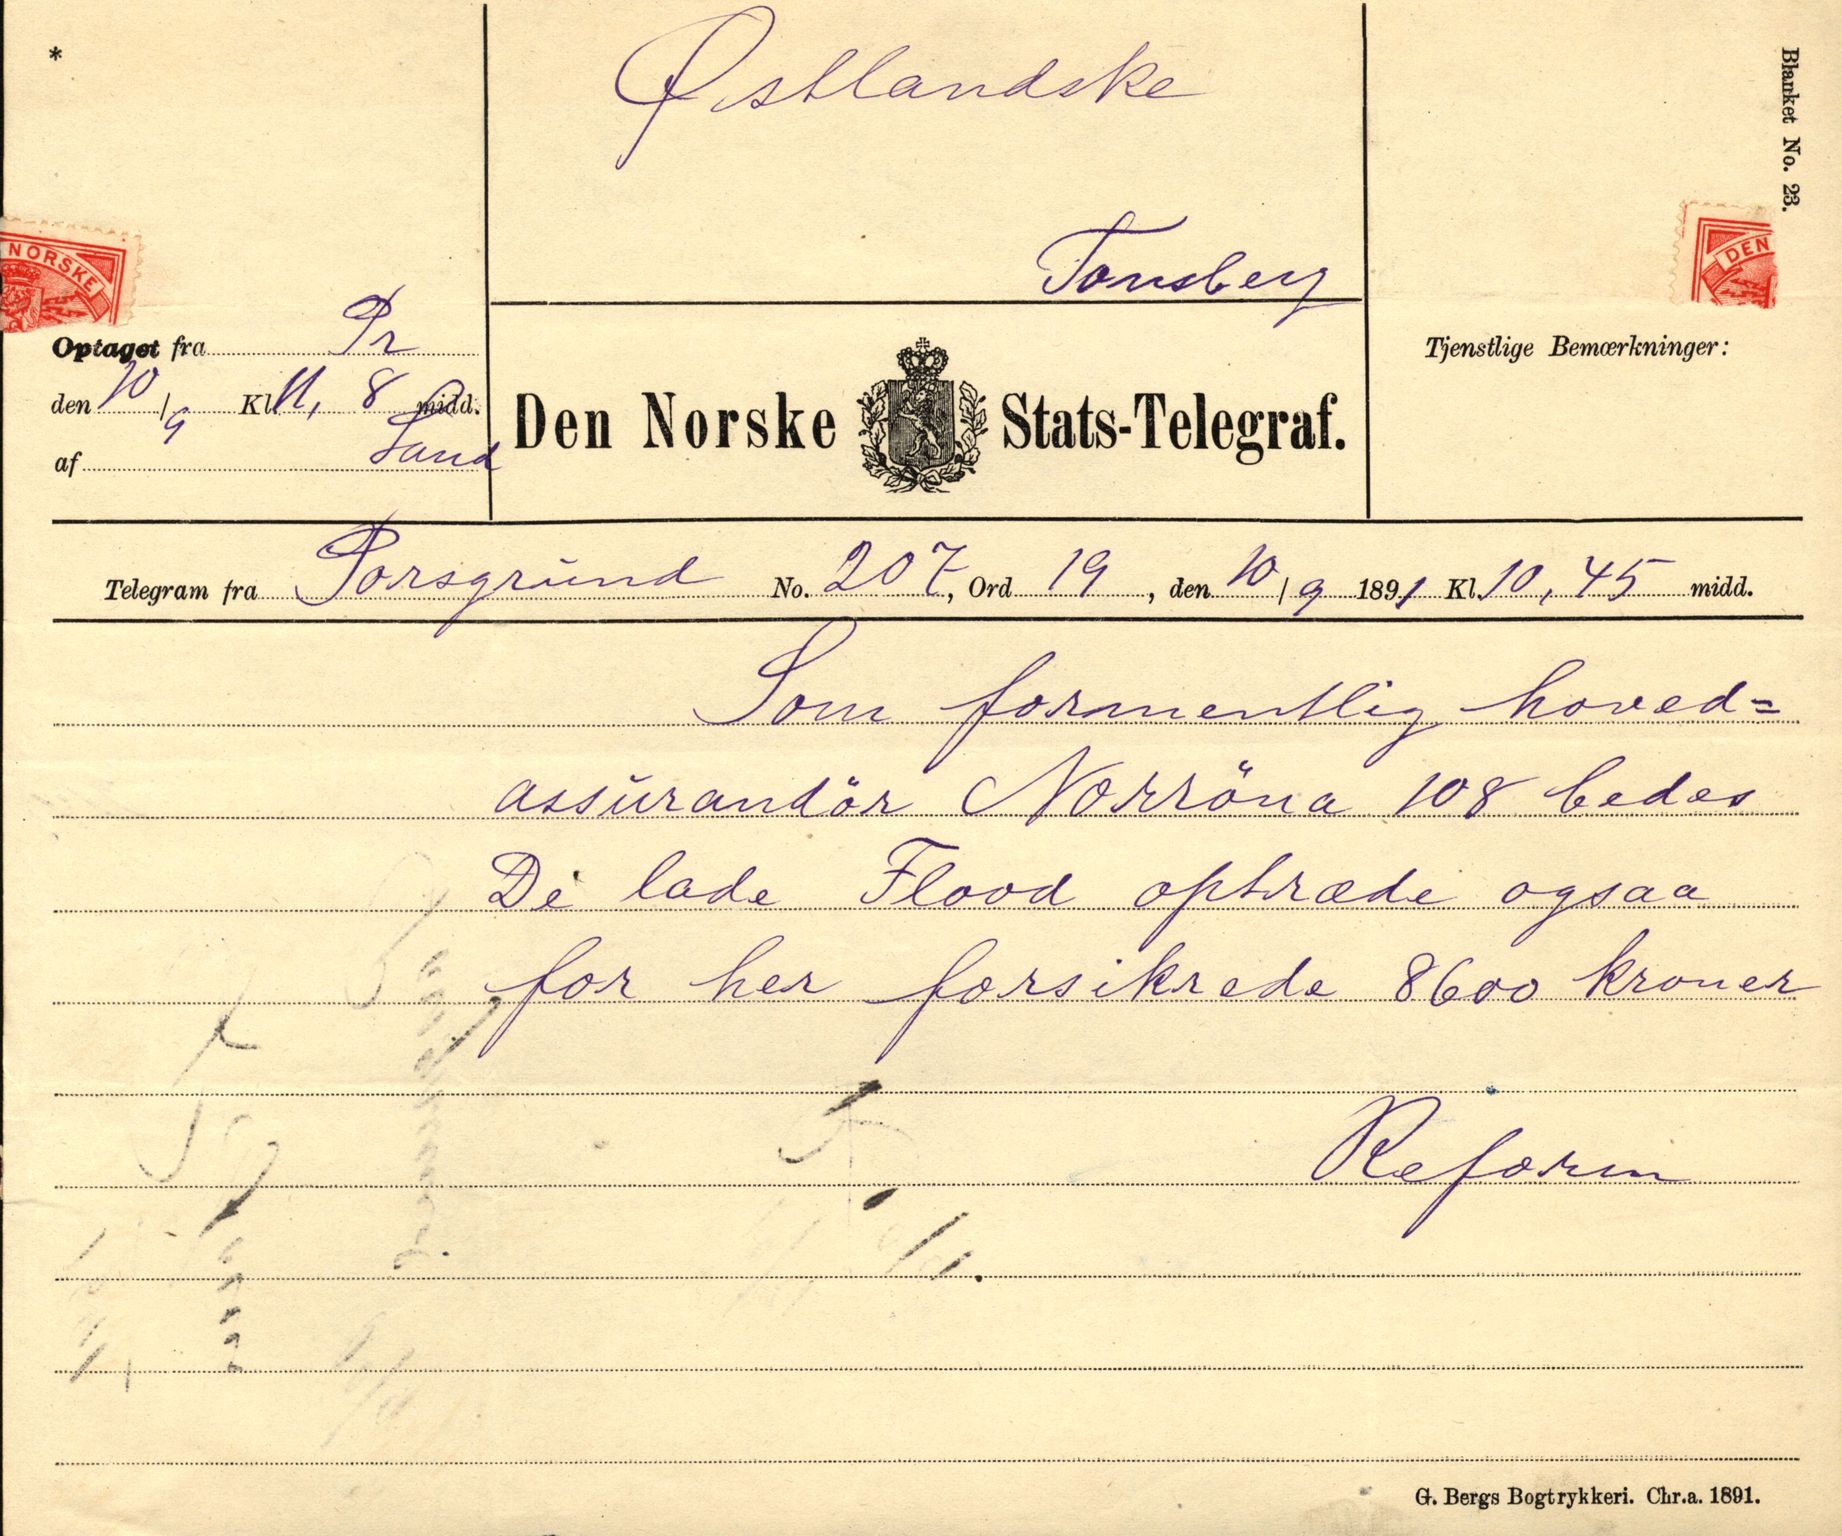 *
Østlandske
Blanket No. 23.
Tønsberg
NORSKE
DEN
Optaget fra Pr
den 10/9 Kl. 11, 8 midd.
af Sand
Den Norske Stats-Telegraf.
Tjenstlige Bemærkninger:
Telegram fra Porsgrund No. 207, Ord 19, den 10/9 1891 Kl. 10,45 midd.
Som formentlig hoved=
assurandör Norröna 108 bedes
De lade Flood optræde ogsaa
for her forsikrede 8600 kroner
Reform
G. Bergs Bogtrykkeri. Chr.a. 1891.